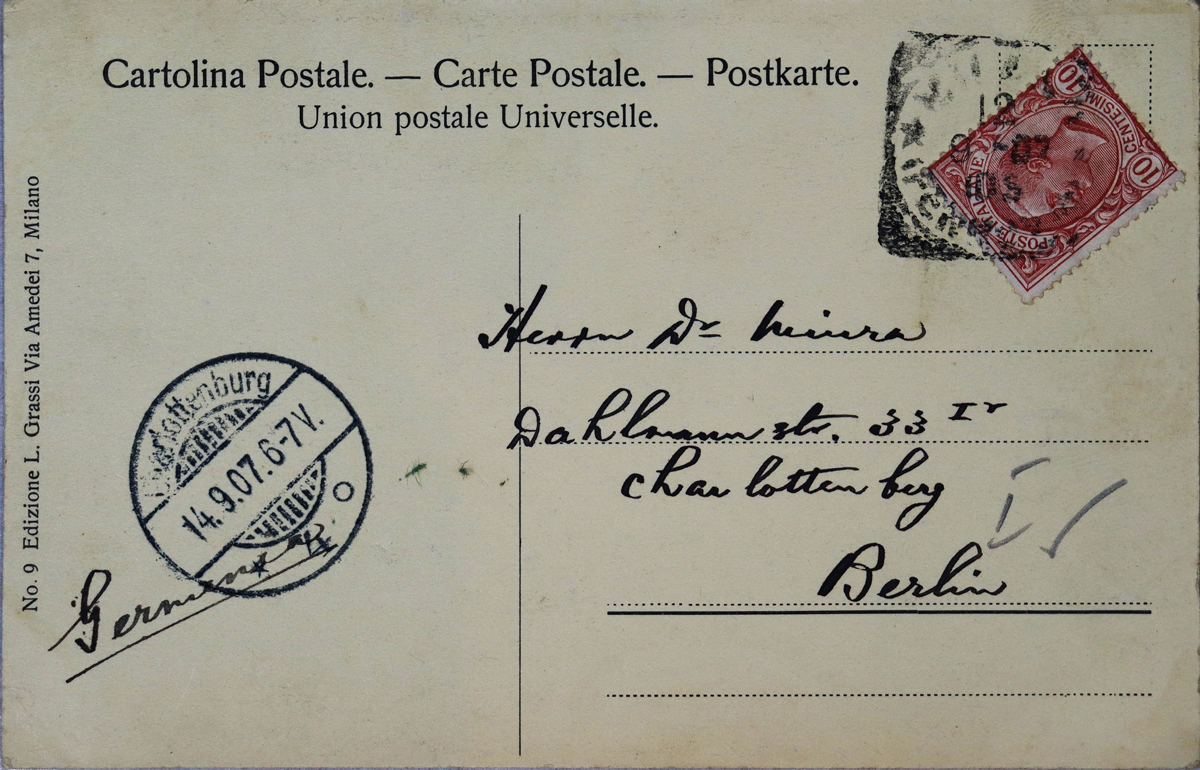 Cartolina Postale. — Carte Postale. — Postkarte.
Union postale Universelle.
No. 9 Edizione L. Grassi Via Amedei 7, Milano
10 CENTESIMI 10
POSTE ITALIANE
12
07
Herrn Dr Miura
Dahlmannstr. 33 Ir
Charlottenberg
Berlin
Charlottenburg
14.9.07. 6-7V.
Germania